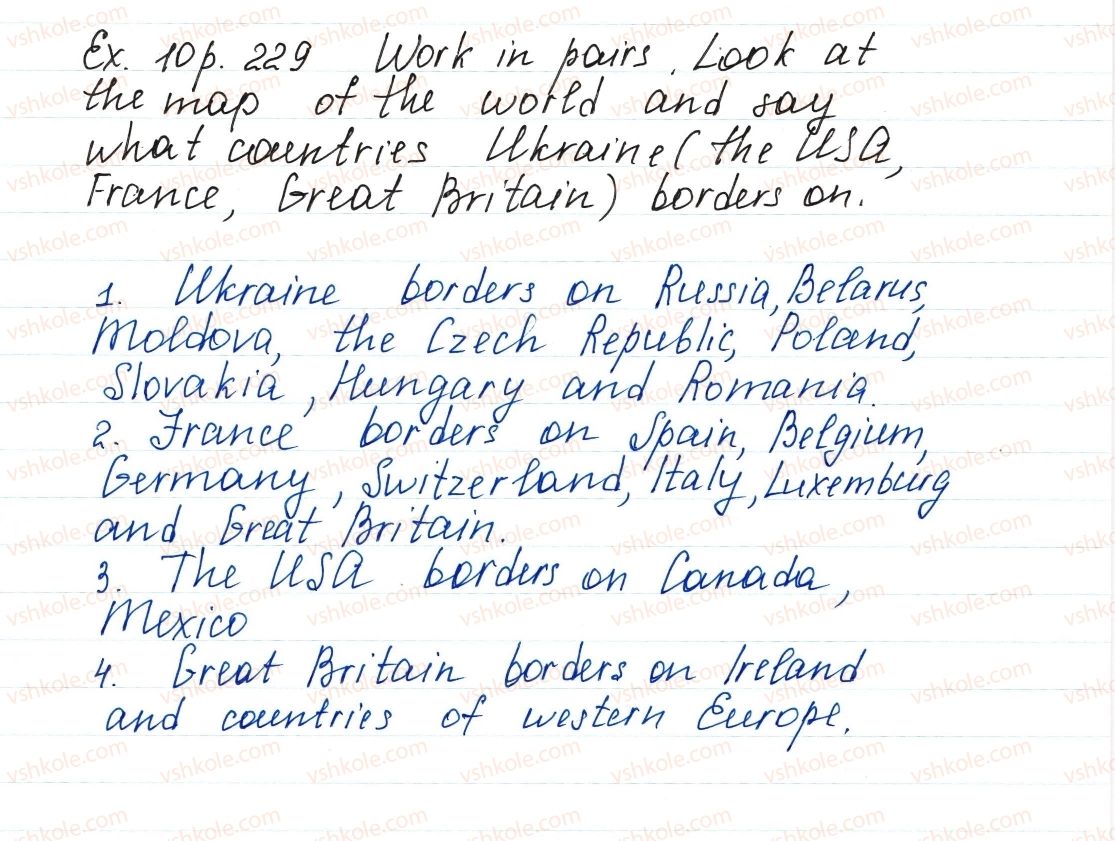 Ex. 10 p. 229 Work in pairs. Look at
the map of the world and say
what countries Ukraine (the USA,
France, Great Britain) borders on.
1. Ukraine borders on Russia, Belarus,
Moldova, the Czech Republic, Poland,
Slovakia, Hungary and Romania.
2. France borders on Spain, Belgium,
Germany, Switzerland, Italy, Luxemburg
and Great Britain.
3. The USA borders on Canada,
Mexico
4. Great Britain borders on Ireland
and countries of western Europe.
vshkole.com